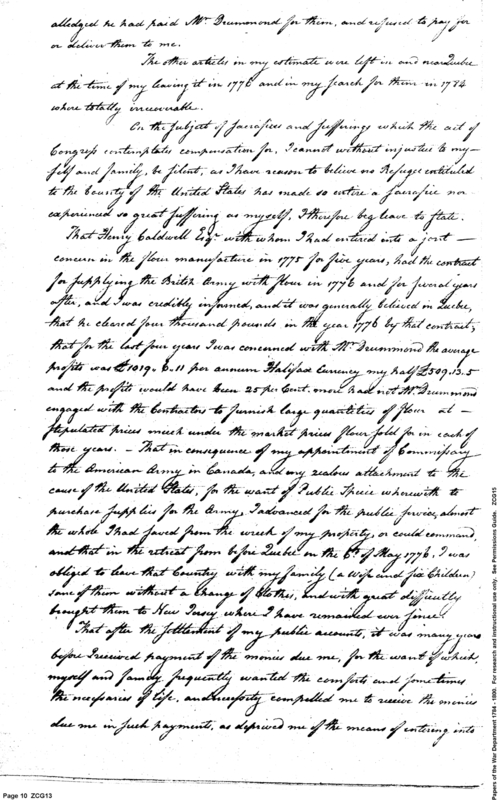 alledged he had paid Mr. Drummond for them, and refused to pay for
or deliver them to me.
The other articles in my estimate were left in and near Quebec
at the time of my leaving it in 1776 and in my search for them in 1784
where totally irrecoverable.
On the subject of sacrafices and sufferings which the act of
Congress contemplates compensation for, I cannot without injustice to my-
self and family, be silent, as I have reason to believe no Refugee entituled
to the bounty of the United States has made so entire a sacrafice nor
experienced so great suffering as myself, I therefore beg leave to state.
That Henry Caldwell Esqr. with whom I had entered into a joint —
concern in the flour manufacture in 1775 for five years, had the contract
for supplying the British Army with flour in 1776 and for several years
after, and I was credibly informed, and it was generally believed in Quebec,
that he cleared four thousand pounds in the year 1776 by that contract;
that for the last four years I was concerned with Mr. Drummond the average
profits was £1019.6.11 per annum Halifax Currency my half £509.13.5
and the profits would have been 25 per Cent. more had not Mr. Drummond
engaged with the Contractors to furnish large quantities of flour at —
stipulated prices much under the market prices flour sold for in each of
those years. — That in consequence of my appointment of Commissary
to the American Army in Canada, and my zealous attachment to the
cause of the United States, for the want of Public Specie wherewith to
purchase supplies for the Army, I advanced for the public service, almost
the whole I had saved from the wreck of my property, or could command,
and that in the retreat from before Quebec on the 6th. of May 1776. I was
obliged to leave that Country with my family (a Wife and six Children)
some of them without a change of Clothes, and with great difficulty
brought them to New Jersey where I have remained ever since.
That after the settlement of my public accounts, it was many years
before I received payment of the monies due me, for the want of which,
myself and family frequently wanted the comforts and sometimes
the necessaries of life, and necessity compelled me to receive the monies
due me in such payments, as deprived me of the means of entering into
Page 10 ZCG13
Papers of the War Department 1784 - 1800. For research and instructional use only. See Permissions Guide. ZCG13